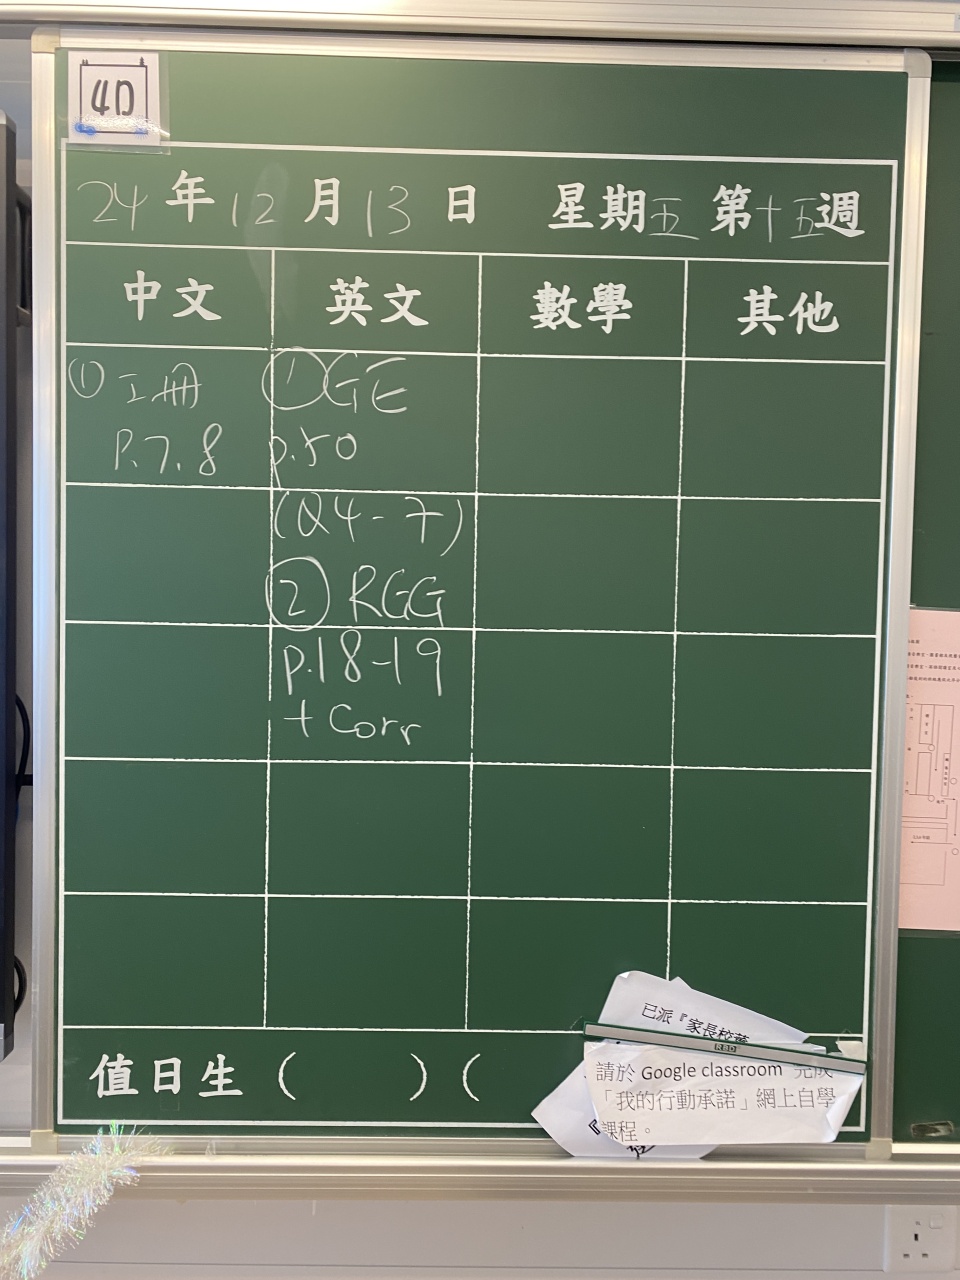 4D
24年12月13日 星期五 第十五週
中文 英文 數學 其他
① 工冊
P.7.8
① GE
p.50
(Q4-7)
② RGG
p.18-19
+ Corr
值日生( )(
已派『家長校
RBD
請於 Google classroom 完成
「我的行動承諾」網上自學
課程。